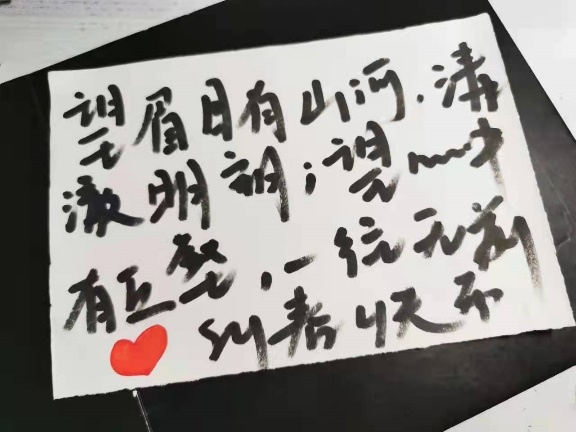 望眉目有山河,清
澈明朗;望心中
有丘壑,一往无前